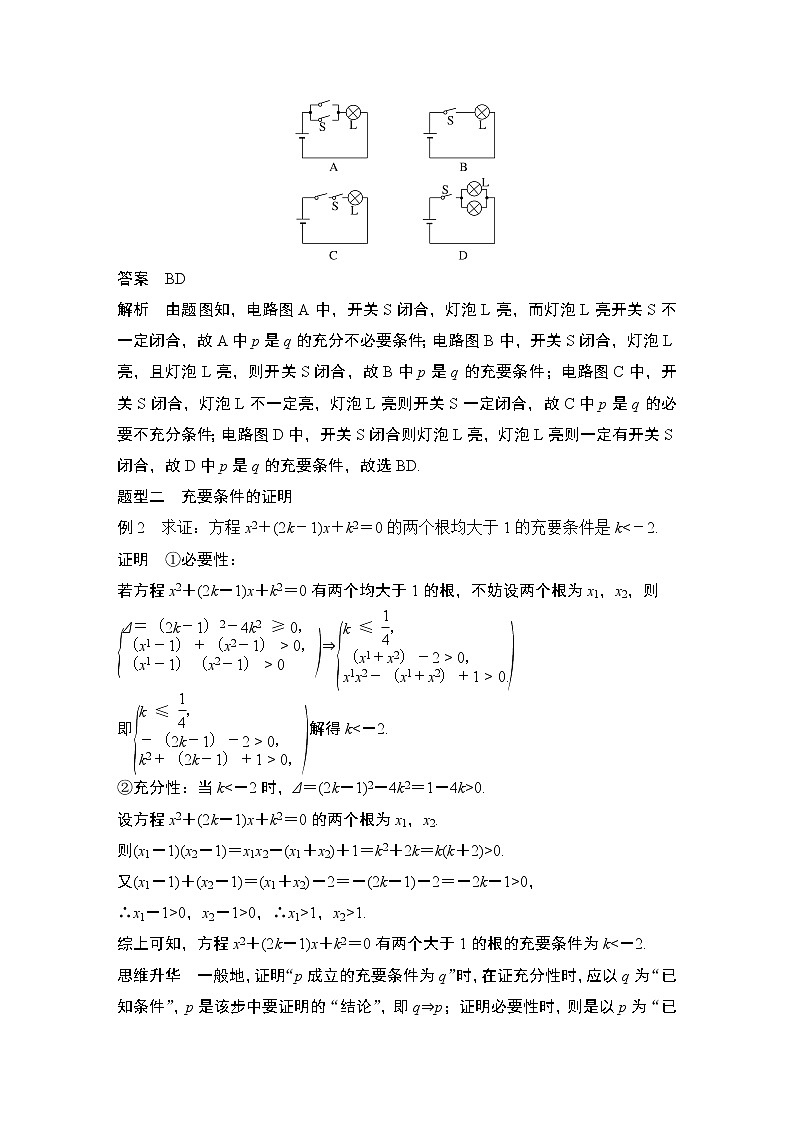 S L
A
S L
B
S L
C
S L
D
答案　BD
解析　由题图知，电路图 A 中，开关 S 闭合，灯泡 L 亮，而灯泡 L 亮开关 S 不
一定闭合，故 A 中 p 是 q 的充分不必要条件；电路图 B 中，开关 S 闭合，灯泡 L
亮，且灯泡 L 亮，则开关 S 闭合，故 B 中 p 是 q 的充要条件；电路图 C 中，开
关 S 闭合，灯泡 L 不一定亮，灯泡 L 亮则开关 S 一定闭合，故 C 中 p 是 q 的必
要不充分条件；电路图 D 中，开关 S 闭合则灯泡 L 亮，灯泡 L 亮则一定有开关 S
闭合，故 D 中 p 是 q 的充要条件，故选 BD.
题型二　充要条件的证明
例 2　求证：方程 x²＋(2k－1)x＋k²＝0 的两个根均大于 1 的充要条件是 k<－2.
证明　①必要性：
若方程 x²＋(2k－1)x＋k²＝0 有两个均大于 1 的根，不妨设两个根为 x₁，x₂，则
Δ＝（2k－1）²－4k² ≥ 0，
（x¹－1）＋（x²－1）＞0，
（x¹－1）（x²－1）＞0
⇒
k ≤ 1/4，
（x¹＋x²）－2＞0，
x¹x²－（x¹＋x²）＋1＞0.
即
k ≤ 1/4，
－（2k－1）－2＞0，
k²＋（2k－1）＋1＞0，
解得 k<－2.
②充分性：当 k<－2 时，Δ＝(2k－1)²－4k²＝1－4k>0.
设方程 x²＋(2k－1)x＋k²＝0 的两个根为 x₁，x₂.
则(x₁－1)(x₂－1)＝x₁x₂－(x₁＋x₂)＋1＝k²＋2k＝k(k＋2)>0.
又(x₁－1)＋(x₂－1)＝(x₁＋x₂)－2＝－(2k－1)－2＝－2k－1>0，
∴x₁－1>0，x₂－1>0，∴x₁>1，x₂>1.
综上可知，方程 x²＋(2k－1)x＋k²＝0 有两个大于 1 的根的充要条件为 k<－2.
思维升华　一般地，证明“p 成立的充要条件为 q”时，在证充分性时，应以 q 为“已
知条件”，p 是该步中要证明的“结论”，即 q⇒p；证明必要性时，则是以 p 为“已